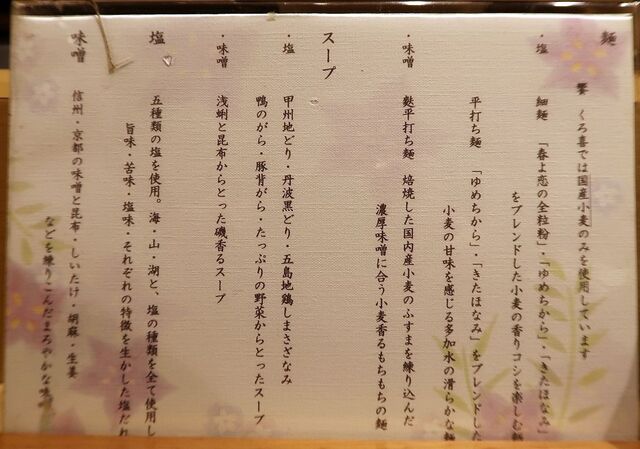 麺
饗 くろ喜では国産小麦のみを使用しています
・塩 細麺 「春よ恋の全粒粉」・「ゆめちから」・「きたほなみ」
をブレンドした小麦の香りコシを楽しむ麺
平打ち麺 「ゆめちから」・「きたほなみ」をブレンドした
小麦の甘味を感じる多加水の滑らかな麺
・味噌 麩平打ち麺 焙焼した国内産小麦のふすまを練り込んだ
濃厚味噌に合う小麦香るもちもちの麺
スープ
・塩 甲州地どり・丹波黒どり・五島地鶏しまさざなみ
鴨のがら・豚背がら・たっぷりの野菜からとったスープ
・味噌 浅蜊と昆布からとった磯香るスープ
塩 五種類の塩を使用。海・山・湖と、塩の種類を全て使用し
旨味・苦味・塩味・それぞれの特徴を生かした塩だれ
味噌 信州・京都の味噌と昆布・しいたけ・胡麻・生姜
などを練りこんだまろやかな味噌